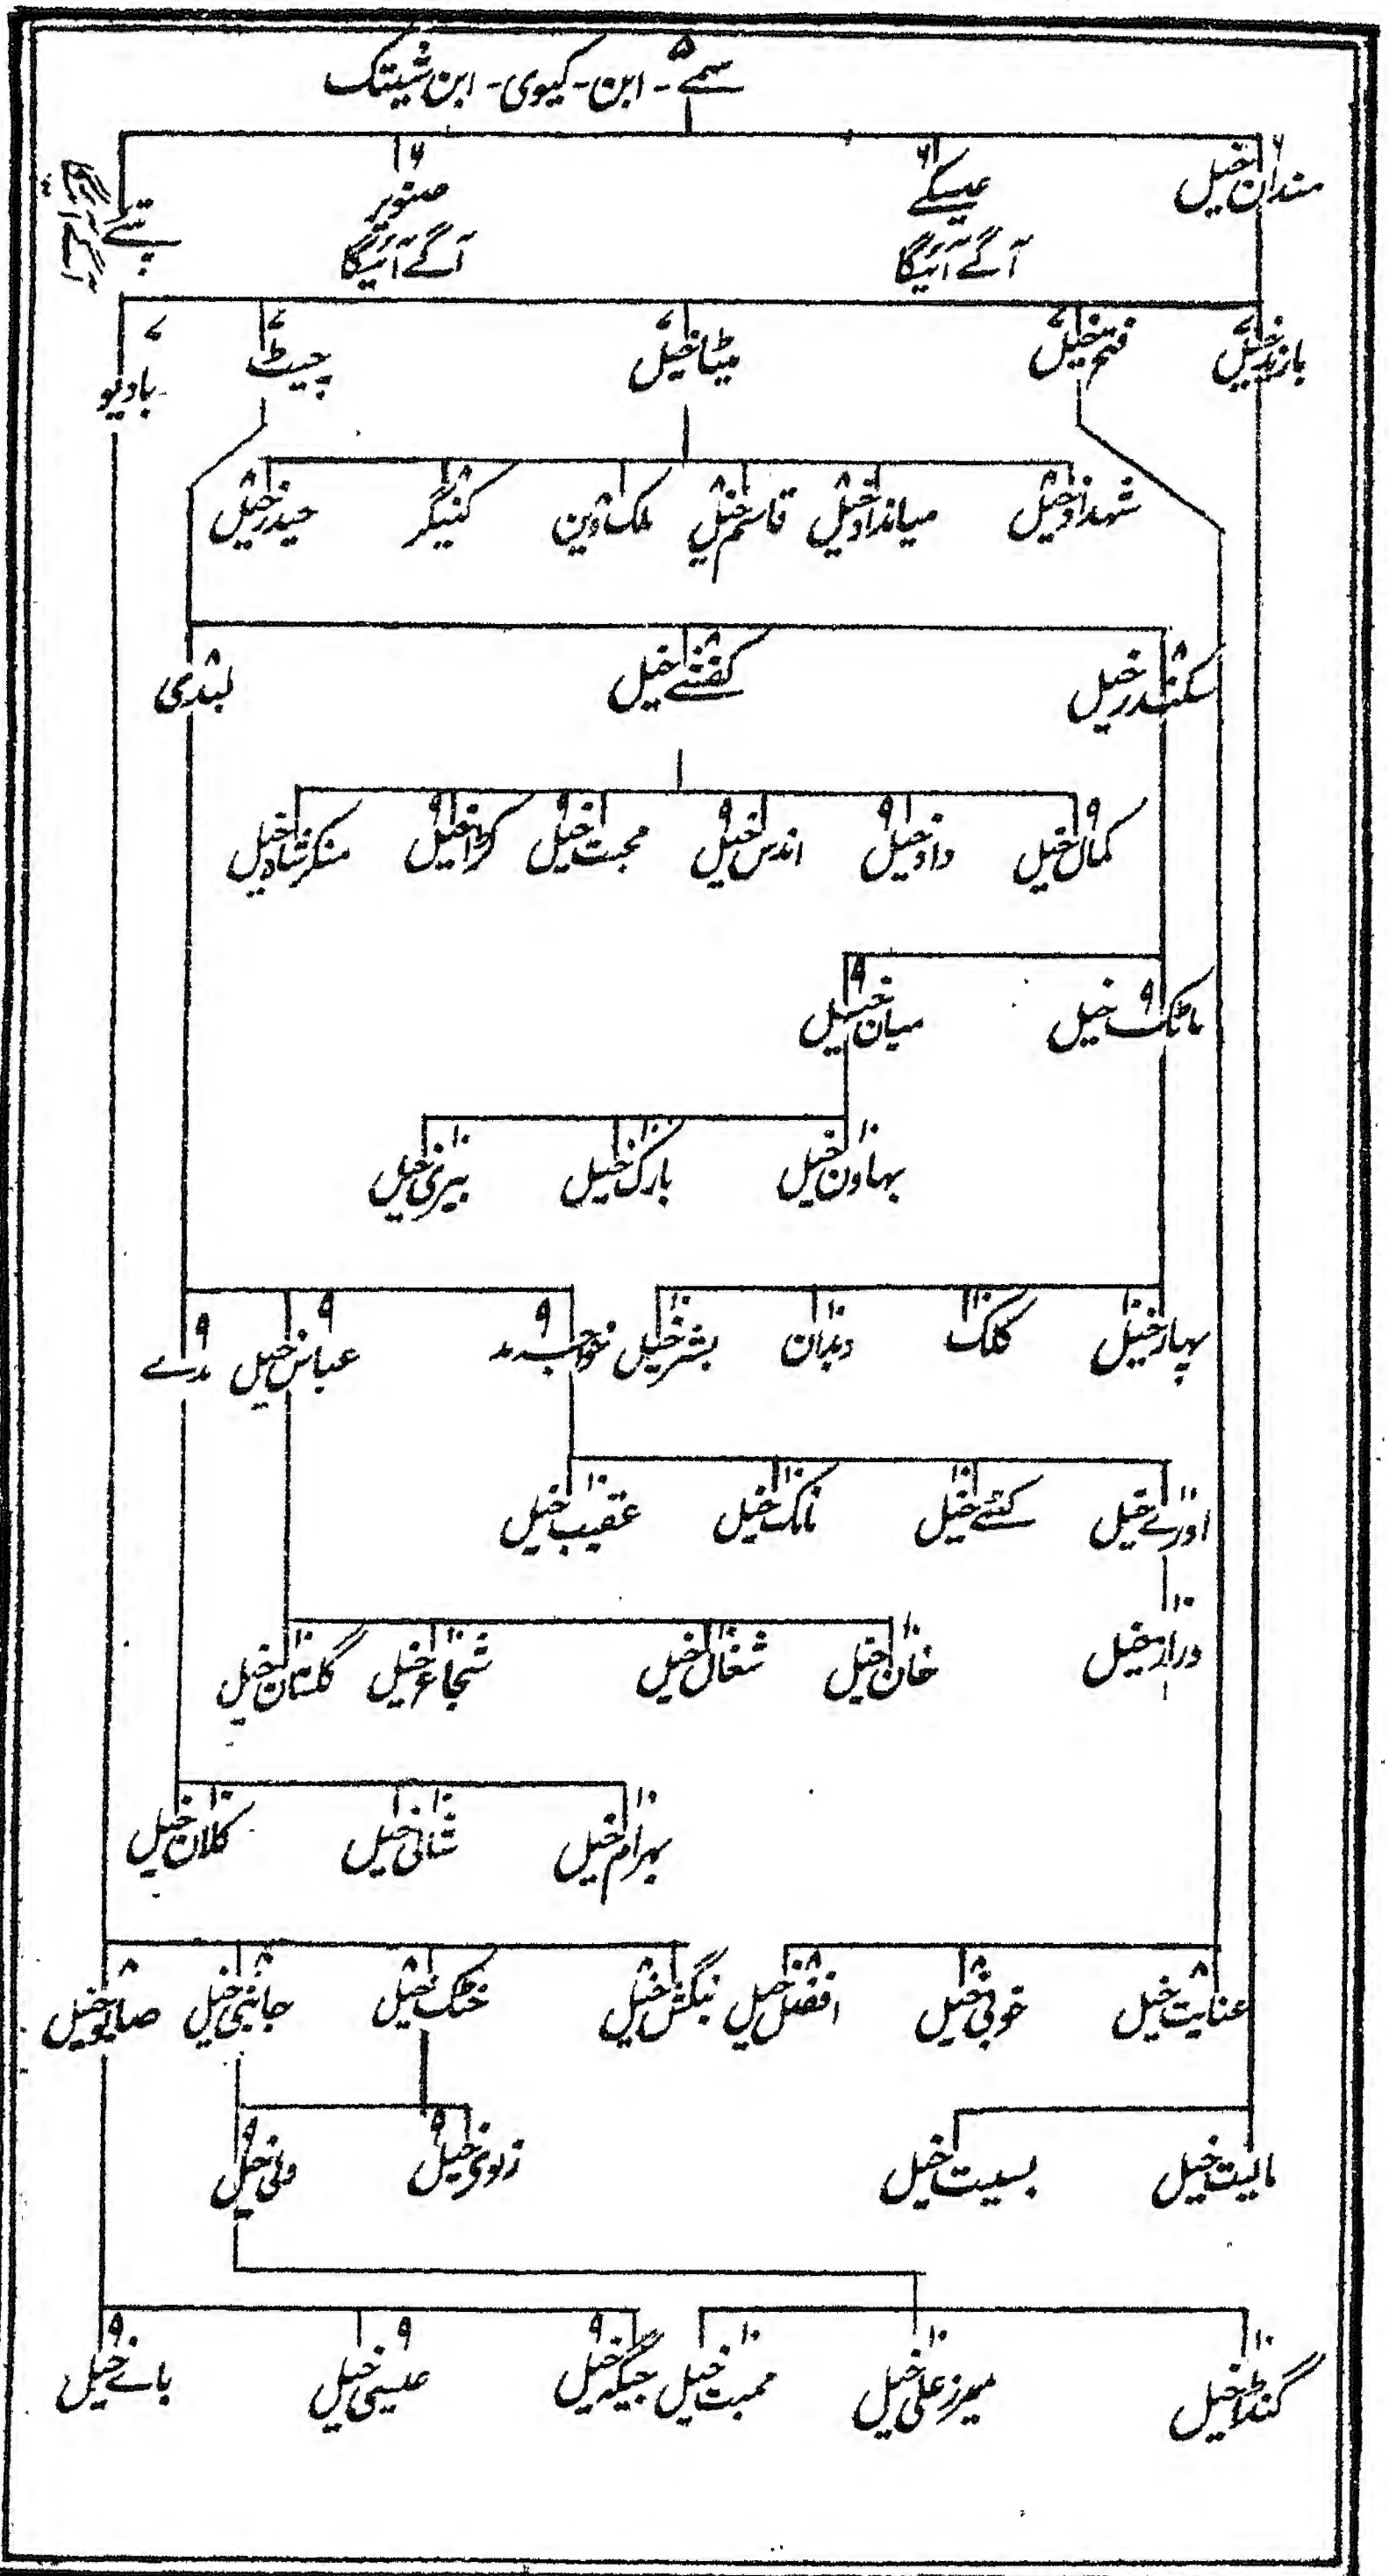 سمے ۵ - ابن - کیوی - ابن شیتک
۶ مندان خیل ۶ عیسکے ۶ صنوبر پتے
آگے آئیگا آگے آئیگا
۷ بازید خیل ۷ فتح خیل ۷ میٹا خیل ۷ چیٹ ۷ بادیو
۸ شہداد خیل ۸ میانداد خیل ۸ قاسم خیل ملک دین ۸ کنیگر ۸ حیدر خیل
۸ سکندر خیل ۸ کفشے خیل لبندی
۹ کمال خیل ۹ داود خیل ۹ اندس خیل ۹ محبت خیل ۹ کڑا خیل منکر شاہ خیل
۹ مانک خیل ۹ میان خیل
۱۰ بہاون خیل ۱۰ بارک خیل ۱۰ بیری خیل
۱۰ پہاڑ خیل ۱۰ کلک ۱۰ دندان ۱۰ بشر خیل ۹ خواجہ مد ۹ عباس خیل ۹ مدے
۱۱ اورے خیل ۱۰ کٹے خیل ۱۰ نانک خیل ۱۰ عقیب خیل
۱۰ دراز خیل ۱۰ خان خیل ۱۰ شغال خیل ۱۰ شجاع خیل ۱۰ گلستان خیل
۱۰ بہرام خیل ۱۰ شالی خیل ۱۰ کلان خیل
۸ عنایت خیل ۸ خوبی خیل ۸ افضل خیل ۸ بنگش خیل ۸ خٹک خیل ۸ جانبی خیل ۸ صابو خیل
مالیت خیل بسیت خیل ۹ زلوی خیل ۹ ولی خیل
۱۰ گنڈا خیل ۱۰ میرز علی خیل ۱۰ ممبت خیل ۹ جیگہ خیل ۹ عیسی خیل ۹ بانے خیل